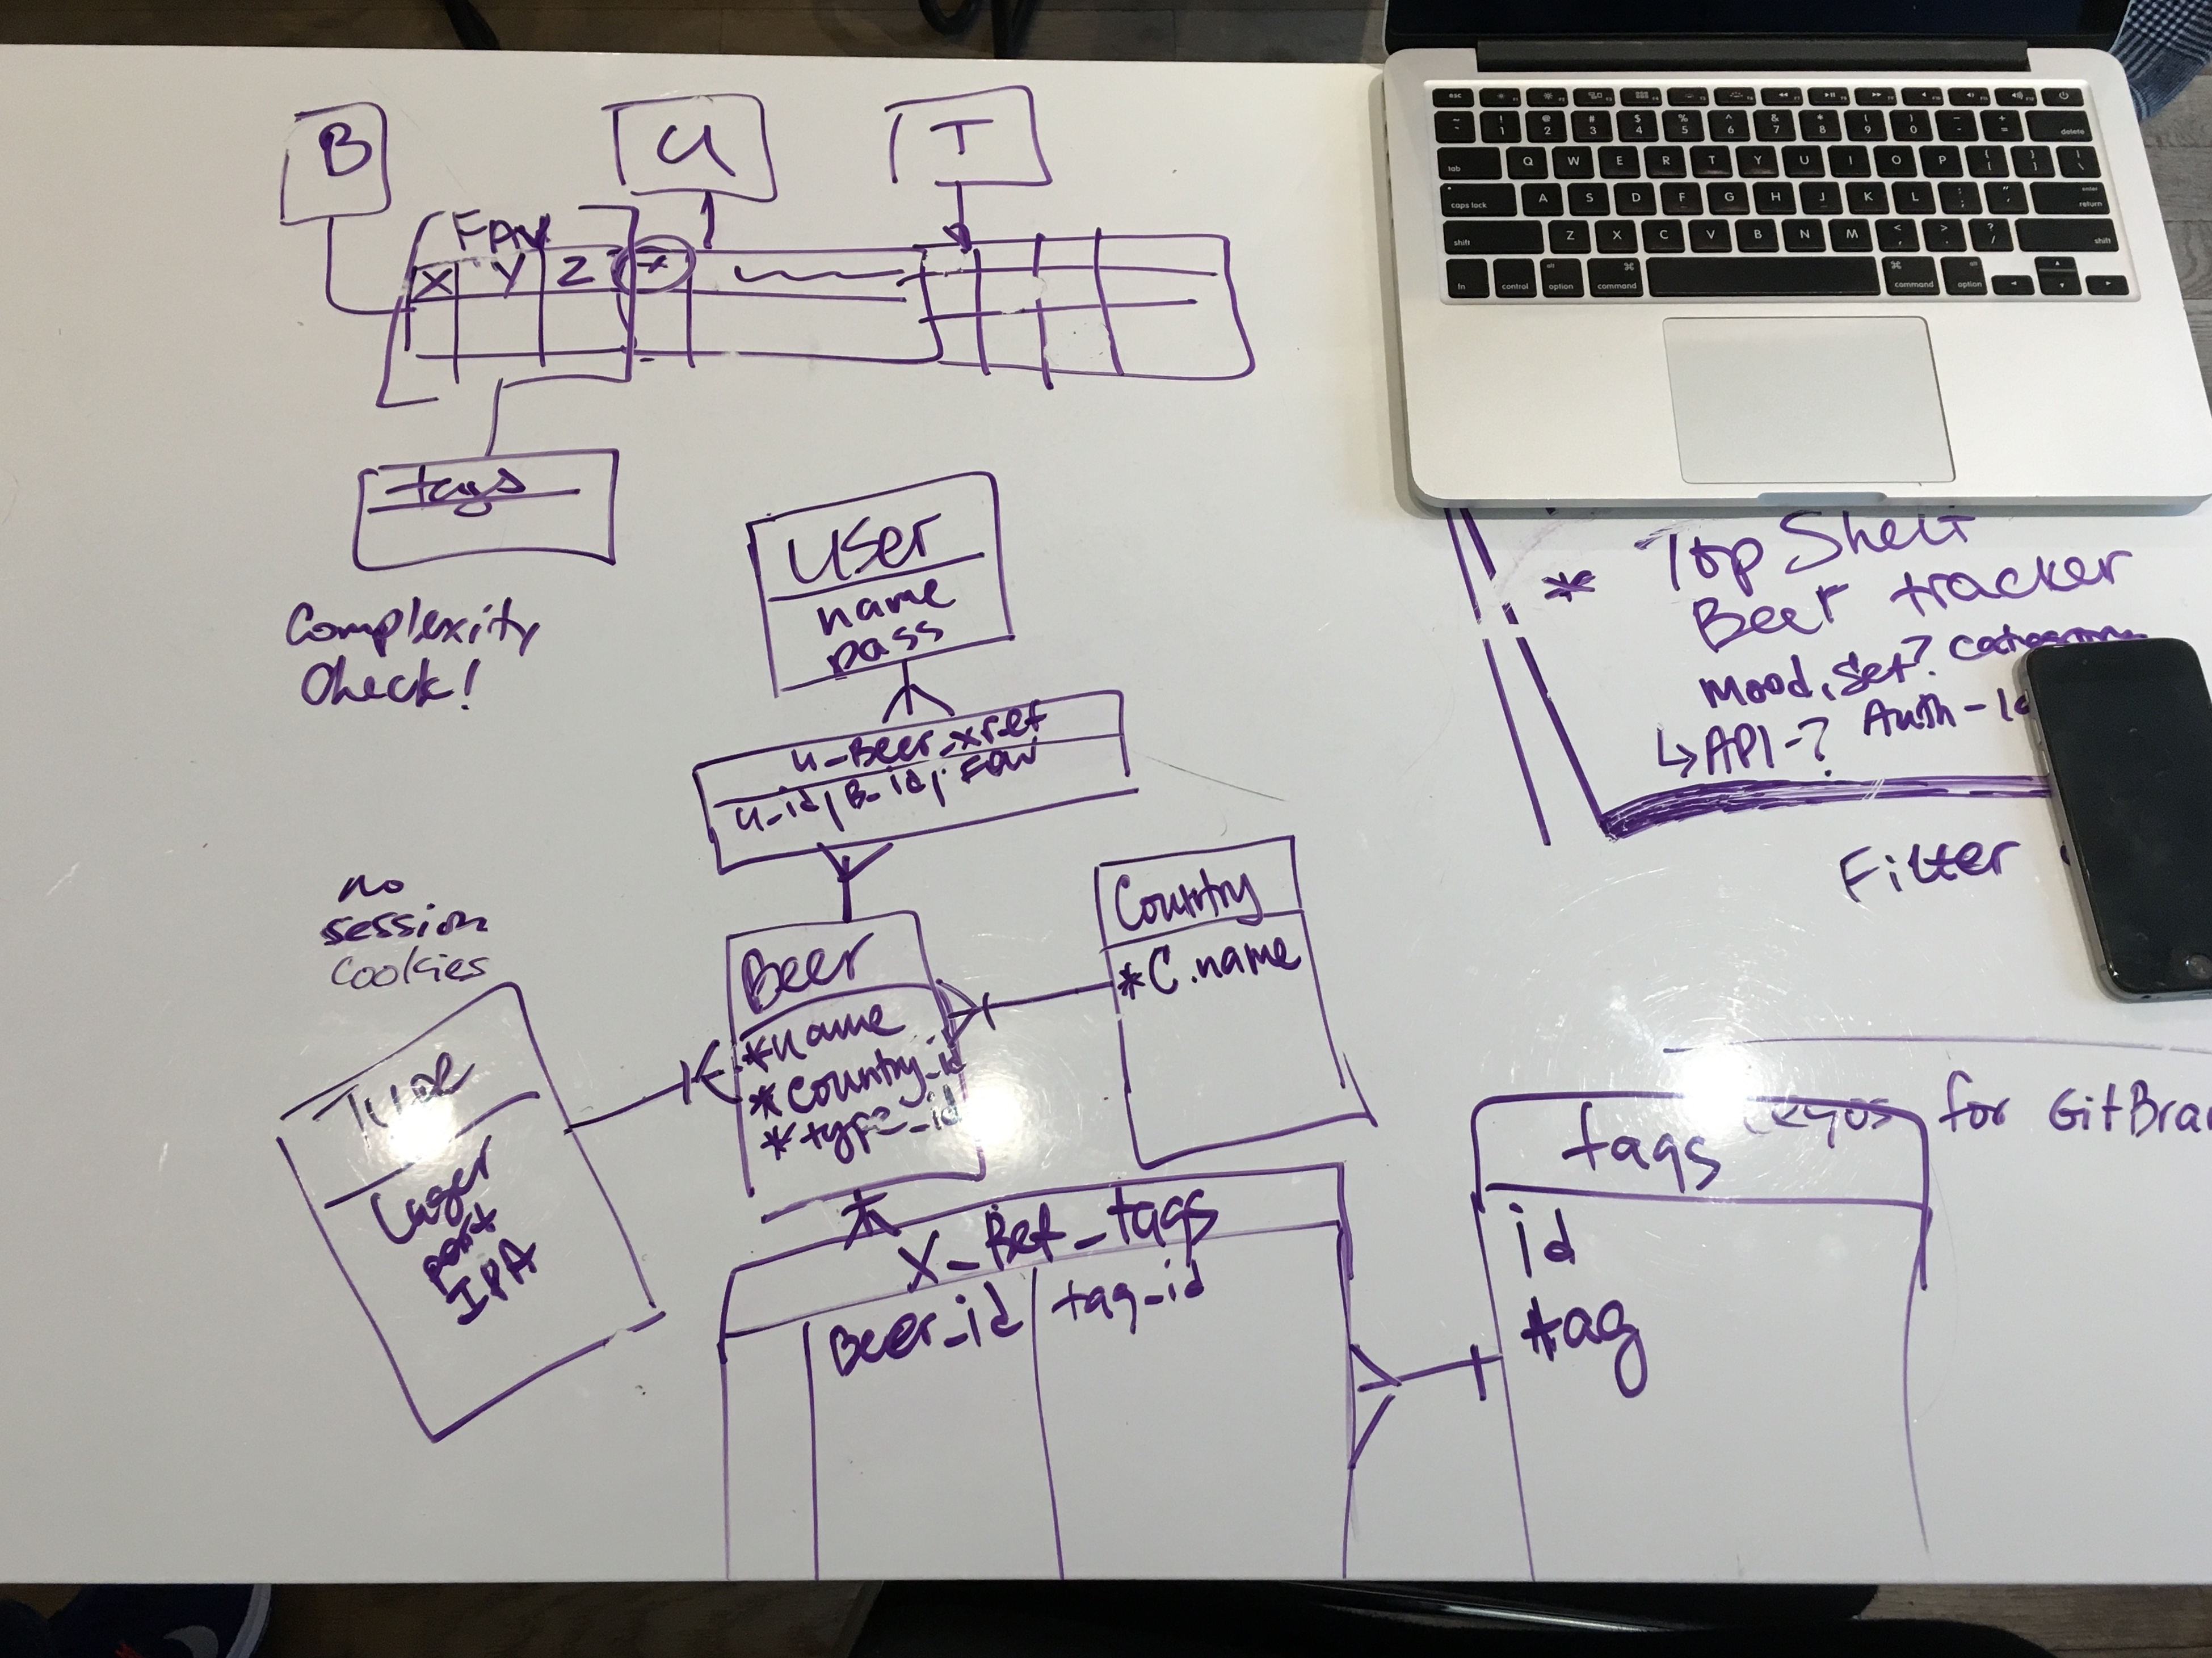 B
U
T
FAV
X Y Z *
tags
Complexity
Check!
User
name
pass
u_Beer_xref
u_id/B_id/Fav
no
session
cookies
Beer
*name
*country_id
*type_id
Country
*C.name
Type
Lager
IPA
X_Ref_tags
Beer_id tag_id
tags
id
tag
* Top Shelf
Beer tracker
Mood, Set?
↳API-? Auth-
Filter
for GitBra
esc
F1 F2 F3 F4 F5 F6 F7 F8 F9 F10 F11 F12
~ ` ! 1 @ 2 # 3 $ 4 % 5 ^ 6 & 7 * 8 ( 9 ) 0 _ - + = delete
tab Q W E R T Y U I O P { [ } ] | \
caps lock A S D F G H J K L : ; " ' enter return
shift Z X C V B N M < , > . ? / shift
fn control alt option ⌘ command ⌘ command alt option